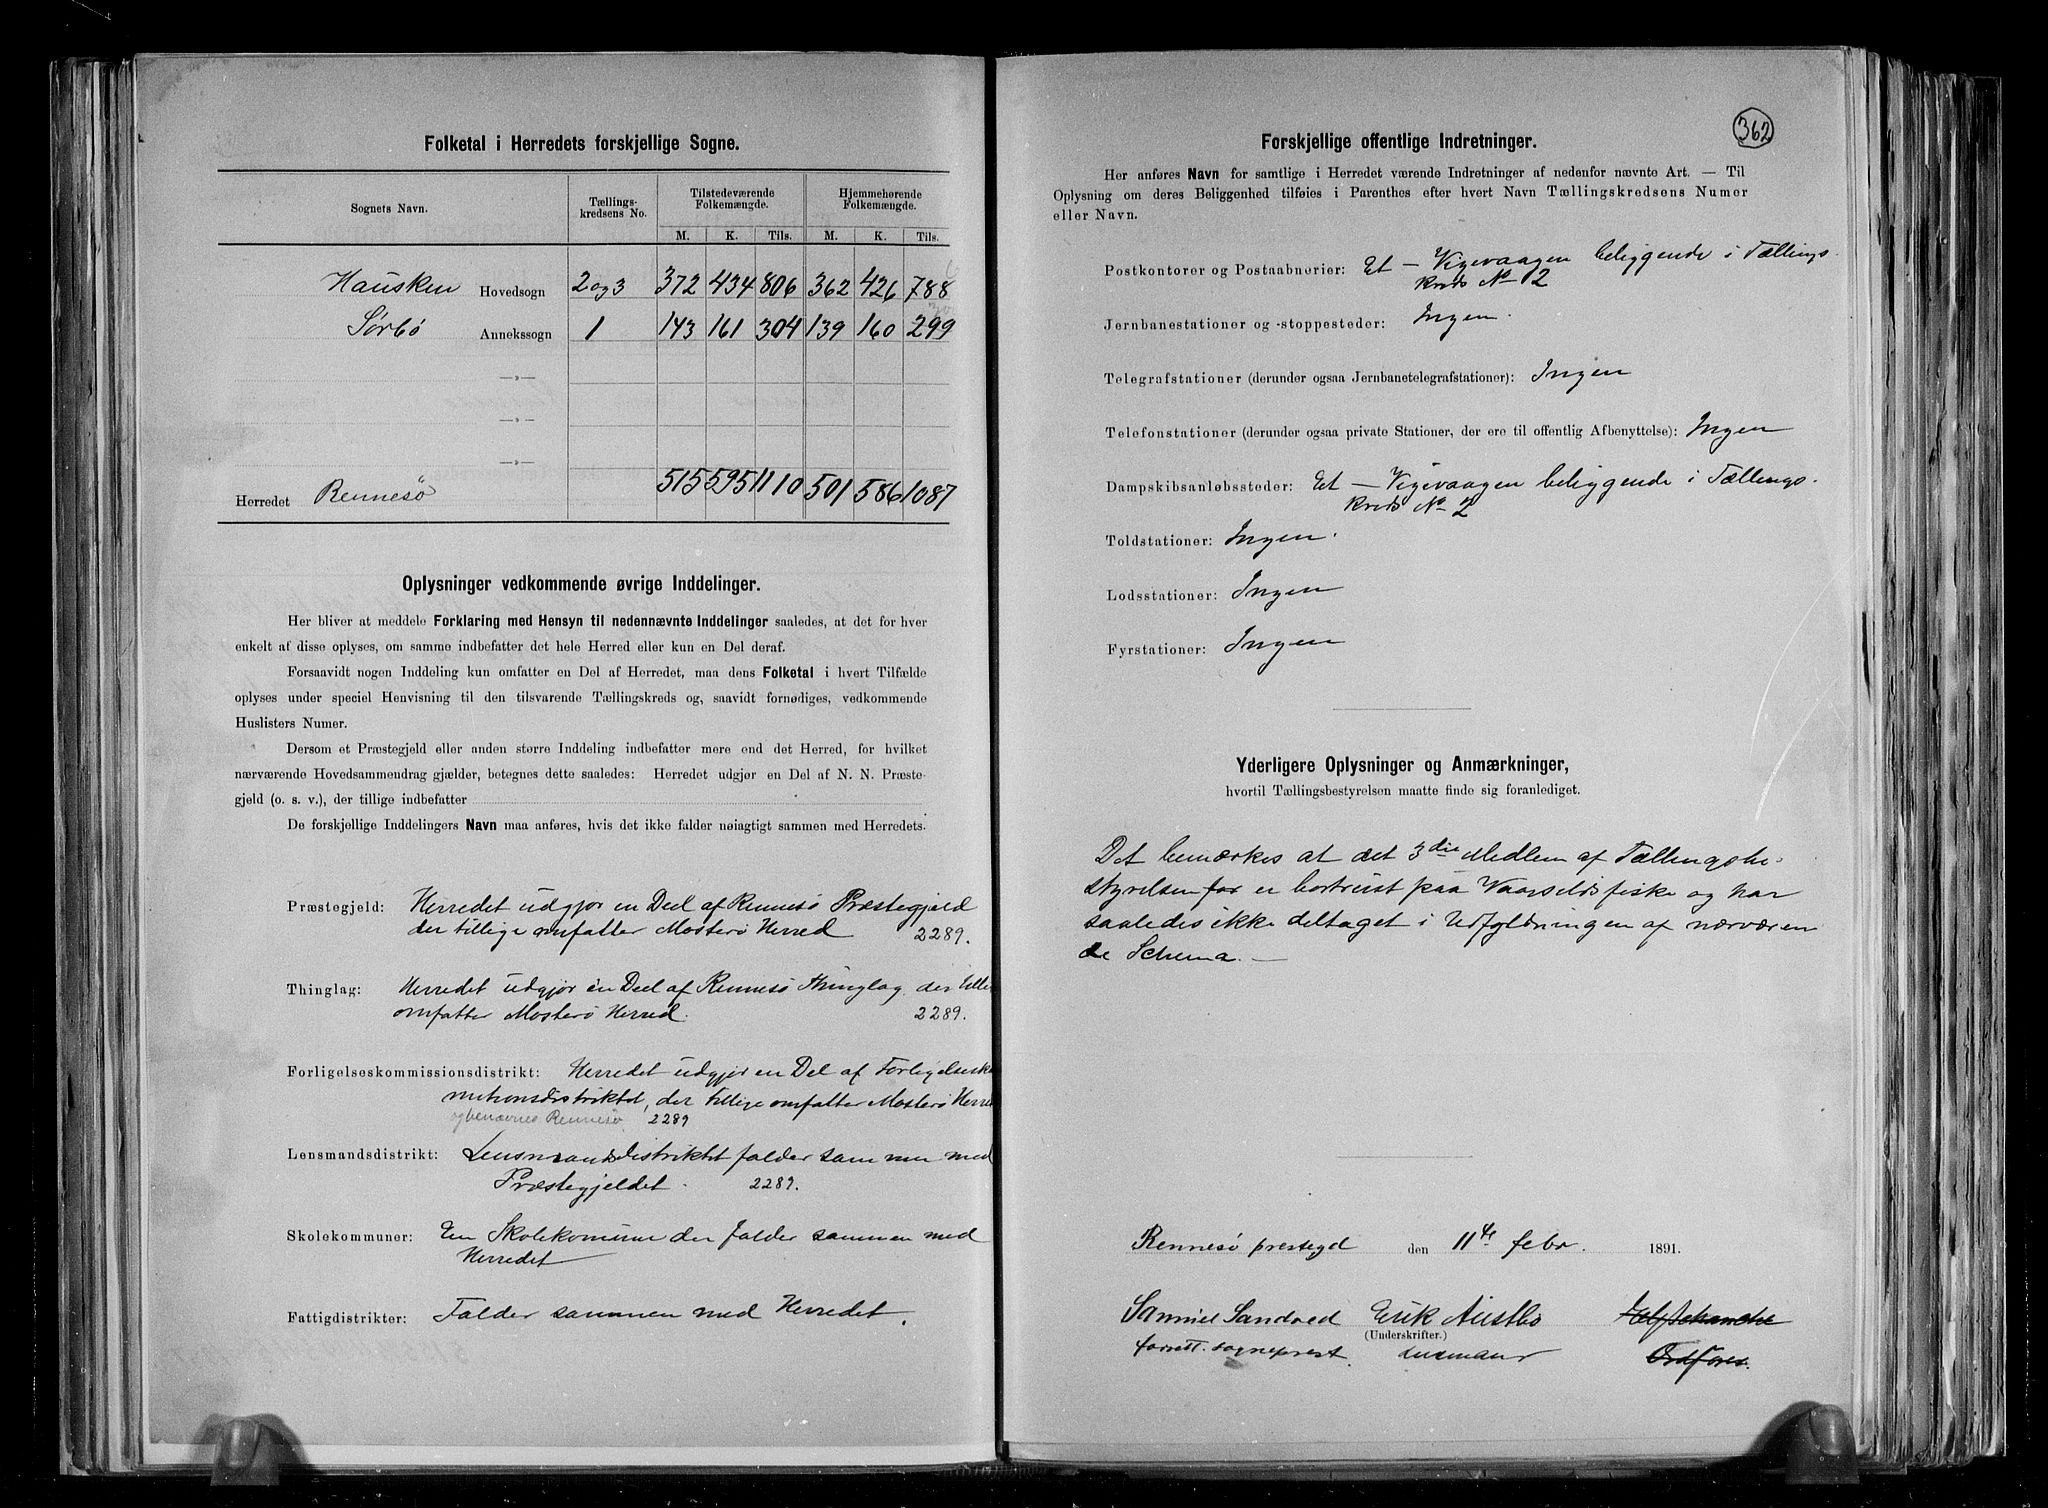 Folketal i Herredets forskjellige Sogne.
Sognets Navn. Tællings- kredsens No. Tilstedeværende Folkemængde. Hjemmehørende Folkemængde.
M. K. Tils. M. K. Tils.
Hausken Hovedsogn 2 og 3 372 434 806 362 426 788
Sørbø Annekssogn 1 143 161 304 139 160 299
—»—
—»—
—»—
Herredet Rennesø 515 595 1110 501 586 1087
Oplysninger vedkommende øvrige Inddelinger.
Her bliver at meddele Forklaring med Hensyn til nedennævnte Inddelinger saaledes, at det for hver
enkelt af disse oplyses, om samme indbefatter det hele Herred eller kun en Del deraf.
Forsaavidt nogen Inddeling kun omfatter en Del af Herredet, maa dens Folketal i hvert Tilfælde
oplyses under speciel Henvisning til den tilsvarende Tællingskreds og, saavidt fornødiges, vedkommende
Huslisters Numer.
Dersom et Præstegjeld eller anden større Inddeling indbefatter mere end det Herred, for hvilket
nærværende Hovedsammendrag gjælder, betegnes dette saaledes: Herredet udgjør en Del af N. N. Præste-
gjeld (o. s. v.), der tillige indbefatter
De forskjellige Inddelingers Navn maa anføres, hvis det ikke falder nøiagtigt sammen med Herredets.
Præstegjeld: Herredet udgjør en Deel af Rennesø Præstegjeld
der tillige omfatter Mosterø Herred 2289.
Thinglag: Herredet udgjør en Deel af Rennesø Thinglag der tilli
omfatter Mosterø Herred. 2289.
Forligelseskommissionsdistrikt: Herredet udgjør en Del af Forligelsesko
mitionsdistriktet, der tillige omfatter Mosterø Herre
og benævnes Rennesø. 2289
Lensmandsdistrikt: Lensmandsdistriktet falder sammen med
Præstegjeldet. 2289.
Skolekommuner: En Skolekomune der falder sammen med
Herredet
Fattigdistrikter: Falder sammen med Herredet.
362
Forskjellige offentlige Indretninger.
Her anføres Navn for samtlige i Herredet værende Indretninger af nedenfor nævnte Art. — Til
Oplysning om deres Beliggenhed tilføies i Parenthes efter hvert Navn Tællingskredsens Numer
eller Navn.
Postkontorer og Postaabnerier: Et — Vigevaagen beliggende i Tællings-
kreds No 2
Jernbanestationer og -stoppesteder: Ingen.
Telegrafstationer (derunder ogsaa Jernbanetelegrafstationer): Ingen
Telefonstationer (derunder ogsaa private Stationer, der ere til offentlig Afbenyttelse): Ingen
Dampskibsanløbssteder: Et — Vigevaagen beliggende i Tællings-
kreds No 2
Toldstationer: Ingen.
Lodsstationer: Ingen
Fyrstationer: Ingen
Yderligere Oplysninger og Anmærkninger,
hvortil Tællingsbestyrelsen maatte finde sig foranlediget.
Det bemærkes at det 3die Medlem af Tællingsbe-
styrelsen for er bortreist paa Vaarsildsfiske og har
saaledes ikke deltaget i Udfyldningen af nærværen
de Schema. —
Rennesø prestegd den 11te febr. 1891.
Samuel Sandved Erik Austbø
(Underskrifter.)
forrett. sogneprest. Lensmand Ordfører.